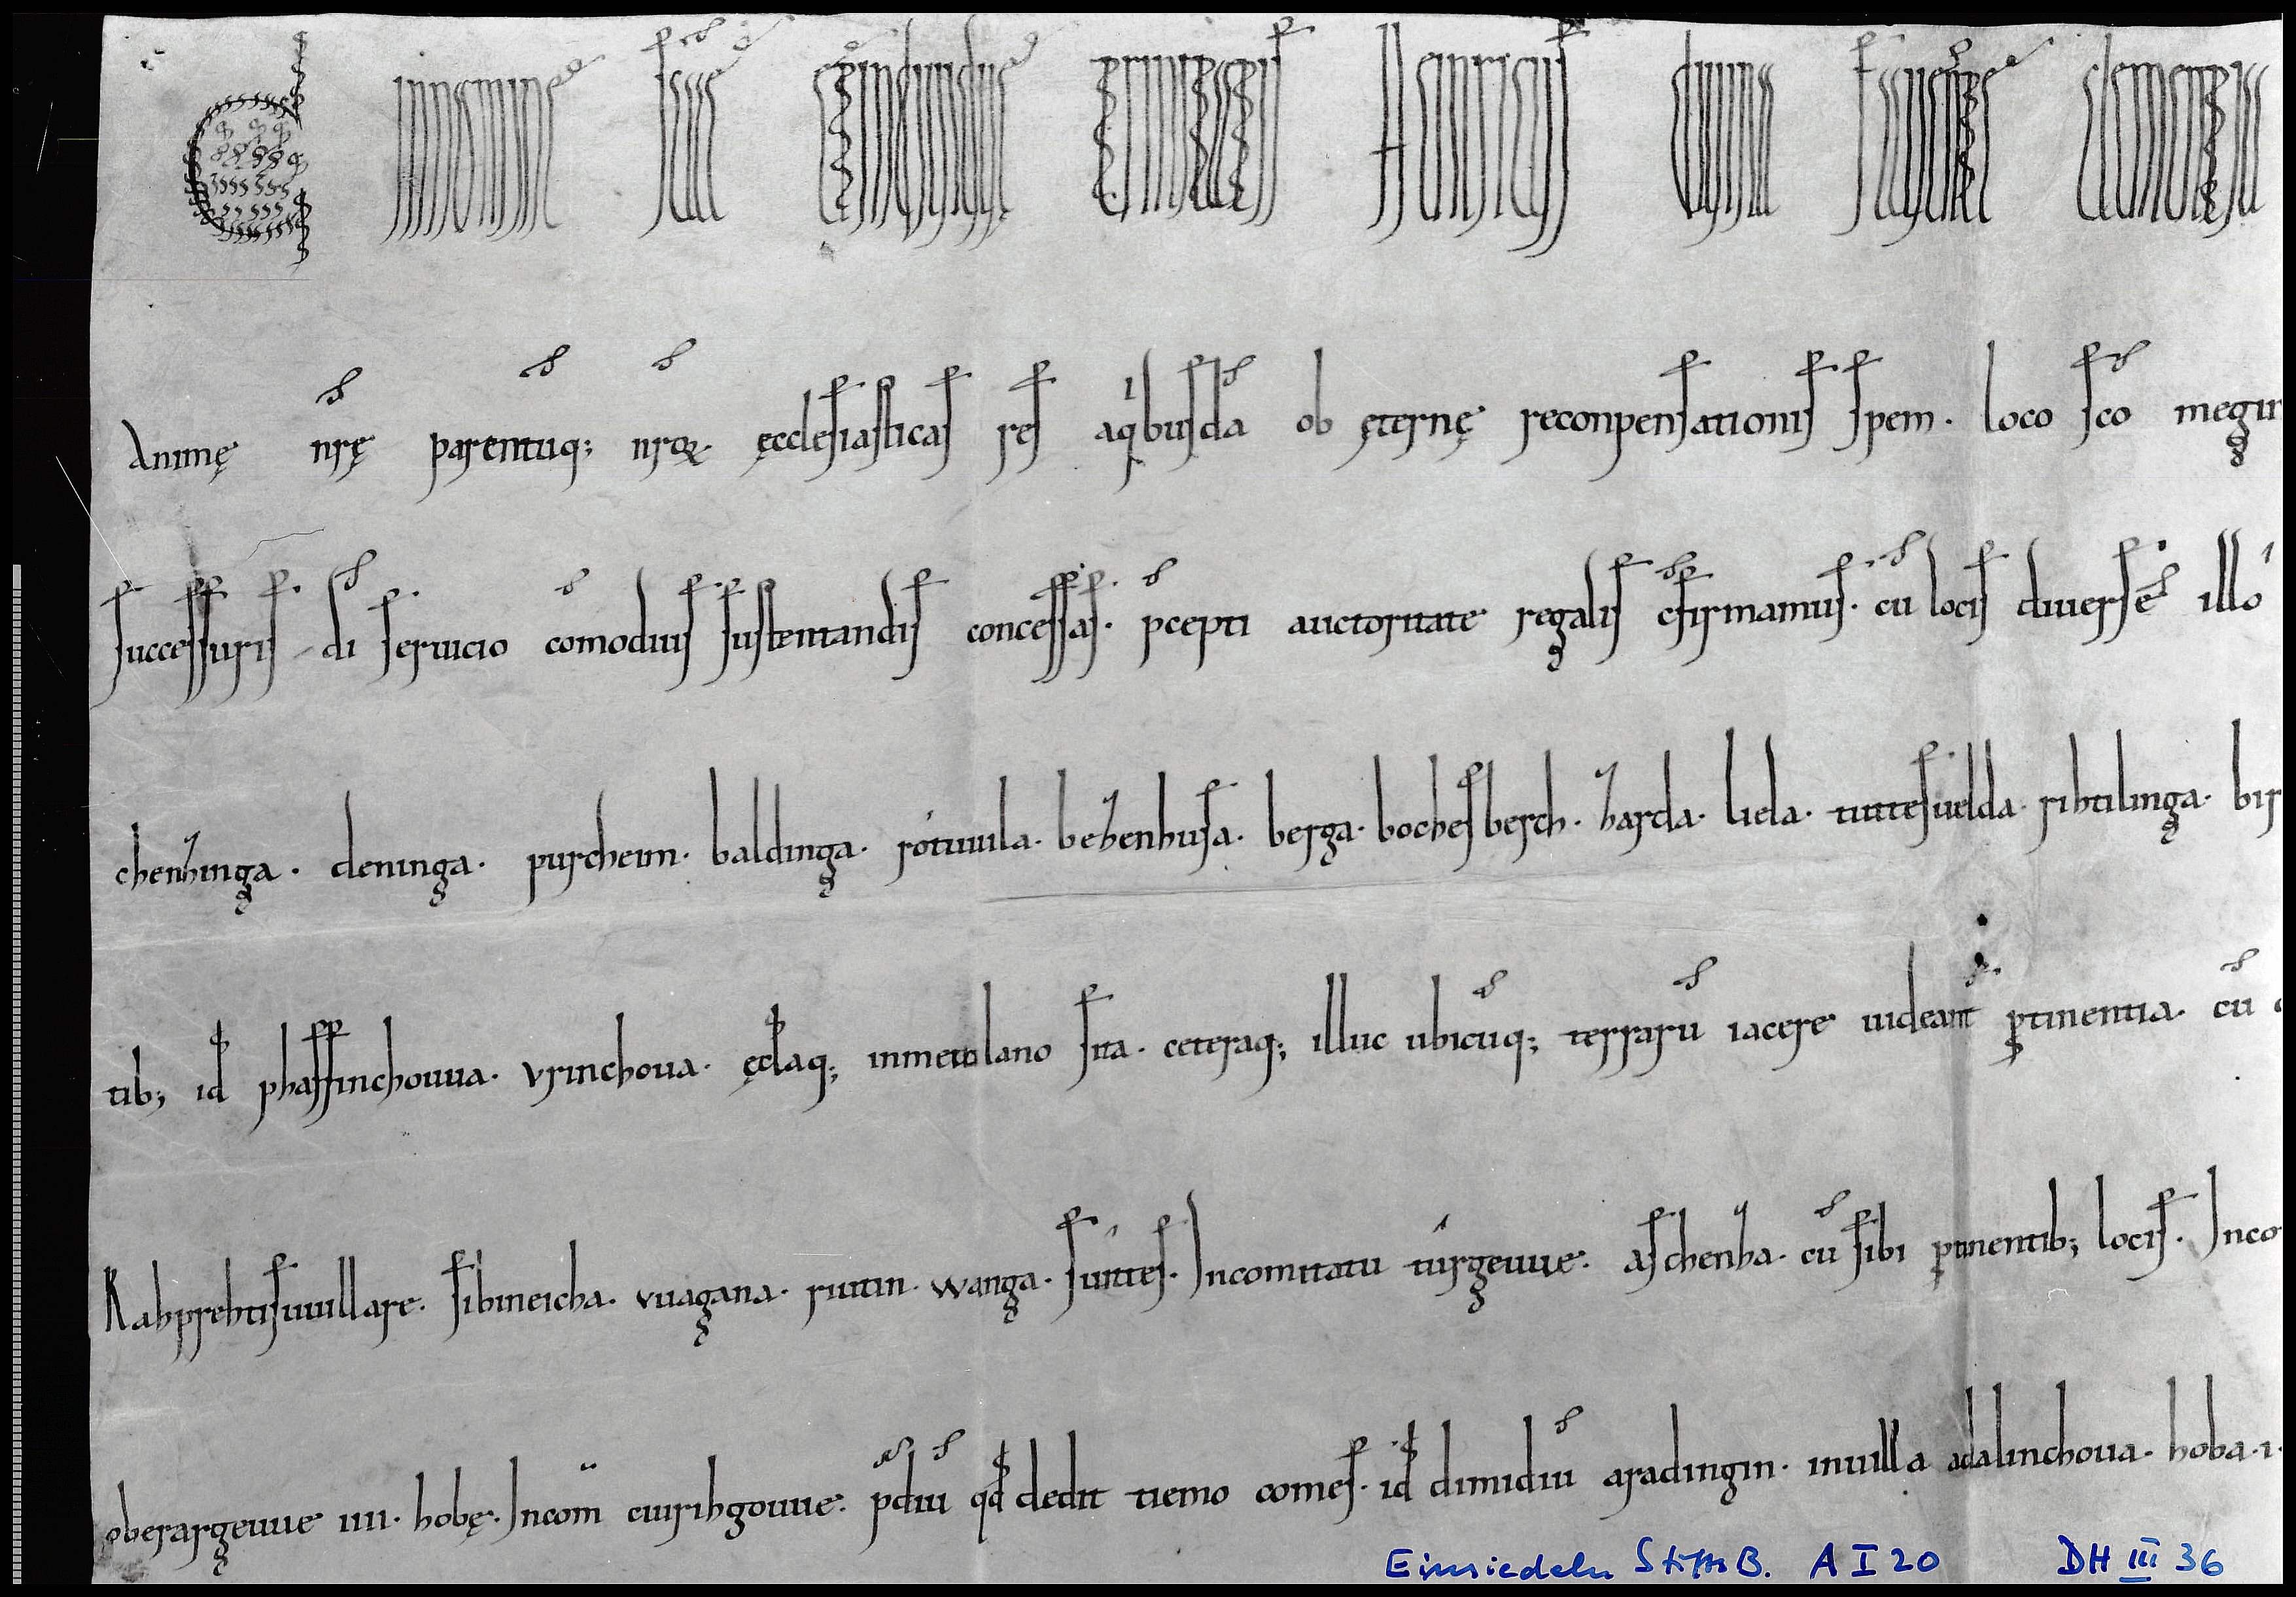 In nomine scae et indiuiduae trinitatis Heinricus diuina fauente clementia
Animę nrę parentuq; nrorꝝ ęcclesiasticas res aqⁱbusdā ob ęternę reconpensationis spem. loco sc̄o megin
successuris di seruicio comodius sustentandis concessas. pcepti auctoritate regalis cfirmamus. cū locis diuersē illo
chenhinga. deninga. purcheim. baldinga. rótuuila. behenhusa. berga. bochesberch. harda. liela. tuttesuelda. rihtilinga. bir
tib; id phaffinchouua. vrinchoua. ęcłaq; inmetilano sita. ceteraq; illuc ubicuq; terrarū iacere uideant ꝑtinentia. cū
Rahprehtisuuillare. sibineicha. vuagana. riutin. wanga. súites. Incomitatu túrgeuue. aschenha. cū sibi ꝑtinentib; locis. Inco
oberargeuue iiii. hobę. Incom̄ cuirihgouue. pdiū qd dedit tiemo comes. id dimidiū aradingin. inuilla adalinchoua. hoba .i.
Einsiedeln StiftsB. A I 20 DH III 36